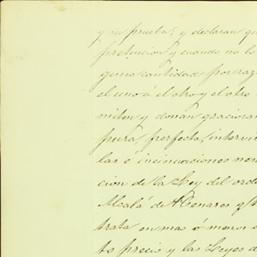 y su prueba; y declaran q
pretencion y cuando no l
guna cantidad por raz
el uno á el otro y el otro
miten y donan graciosam
pura, perfecta, interviv
las é incinuaciones nece
cion de la Ley del orde
Alcalá de Henares q̃
trata en mas ó menos d
to precio y las Leyes d